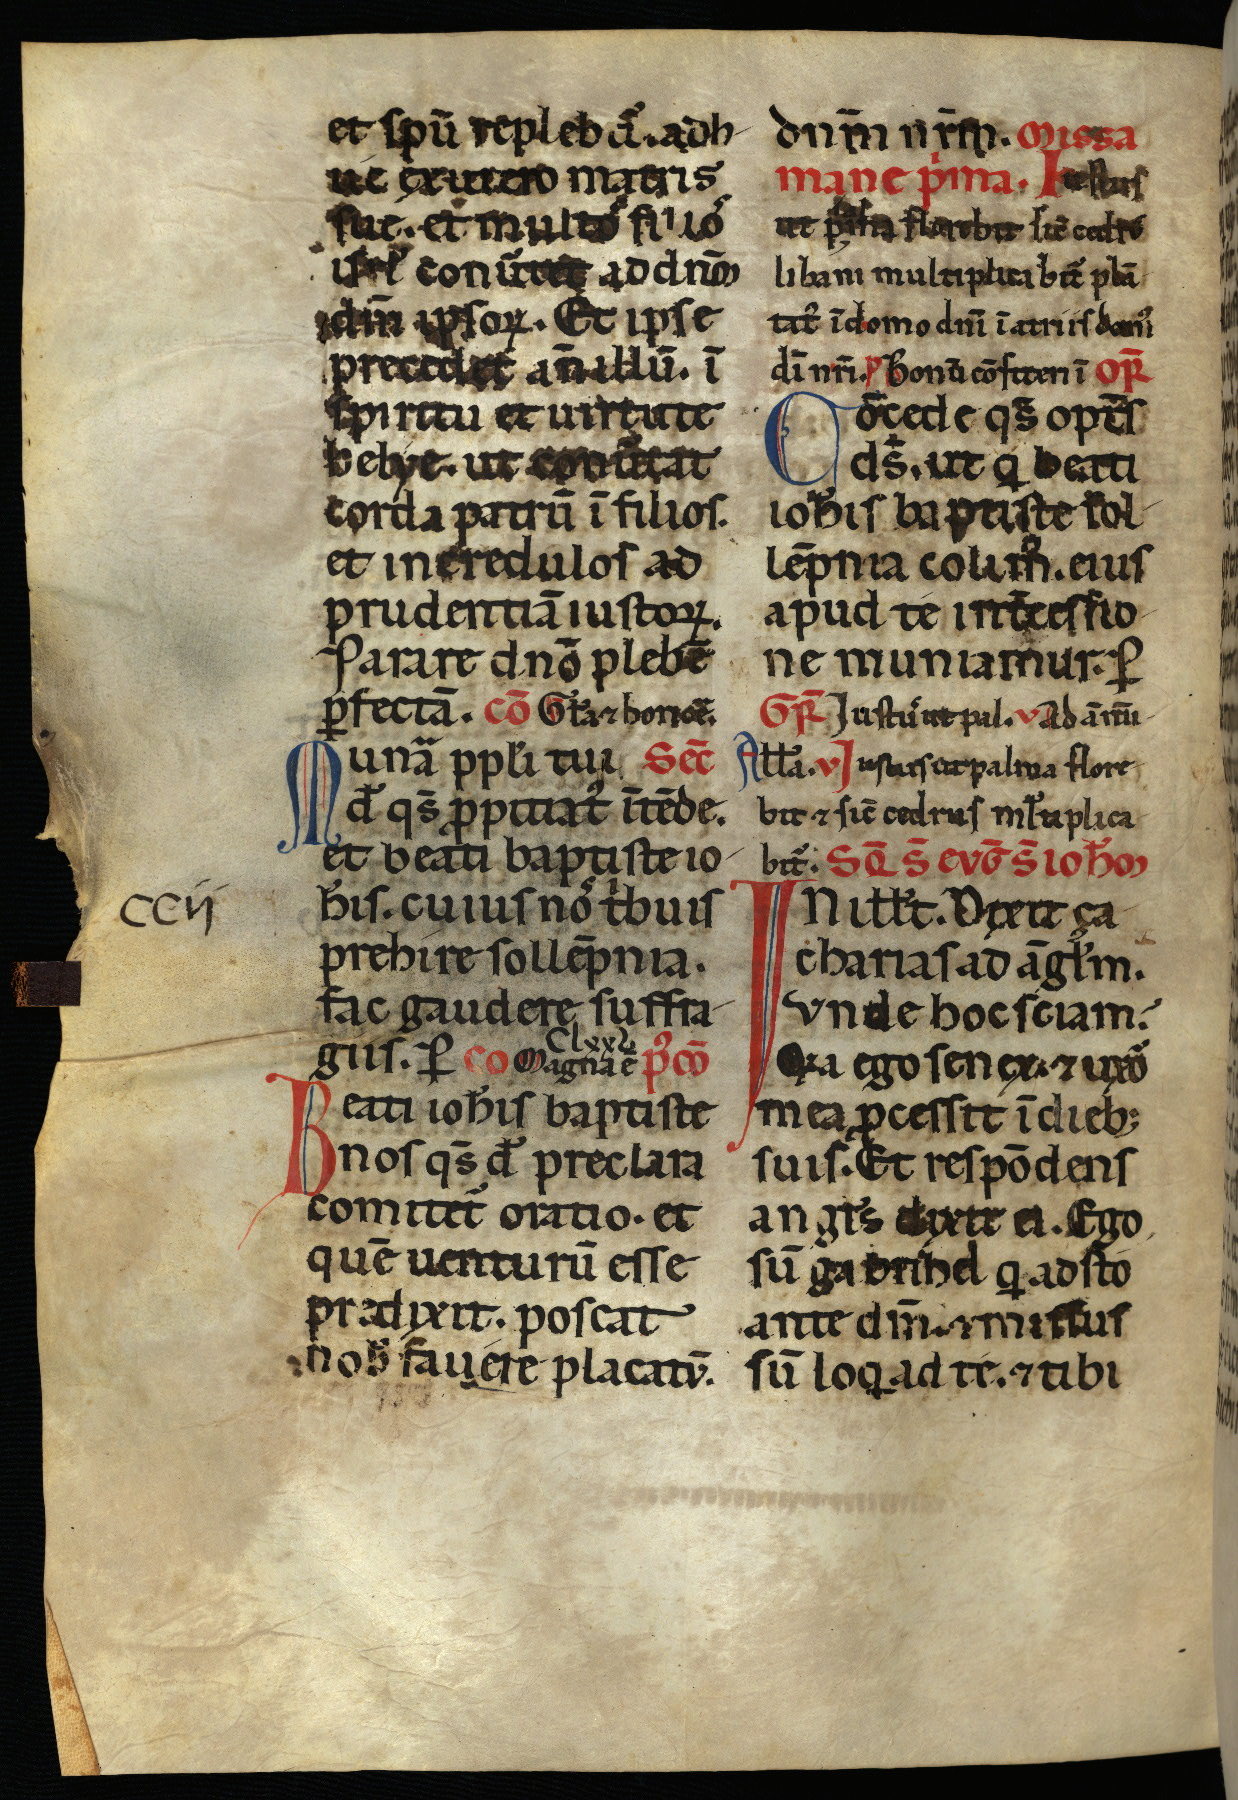 et spū replebit̄. adh
uc ex utero matris
sue. et multos filios
isrl' conuertet ad dnm
dm̄ ipsoꝝ. Et ipse
precedet an̄ illū. ī
spiritu et uirtute
helye. ut conuertat
corda patrū ī filios.
et incredulos ad
prudentiā iustoꝝ.
Parare dn̄o plebē
ꝑfectā. cō Gl'a ⁊ honore.
Munā ppl'i tui Sec̄
d' qs̄ ꝓpitiat' ītēde.
et beati baptiste io
h'is. cuius nos t'buis
prehire sollēpnia.
fac gaudere suffra
giis. ꝑ co Magna ē p'cō
Clxxx
CCij
Beati ioh'is baptiste
nos qs̄ d' preclara
comitet' oratio. et
quē uenturū esse
predixit. poscat
nob' fauere placatū.
dnm̄ nr̄m. Missa
mane p'ma. Iustus
ut palma florebit sic̄ cedrus
libani multiplicabit' plā
tat' ī domo dnī ī atriis dom'
dī nr̄i. p̄ Bonū ē cōfiteri OR̄
Cōcede qs̄ opt̄s
ds̄. ut q beati
ioh'is baptiste sol
lēpnia colim'. eius
apud te int̄cessio
ne muniamur. ꝑ
GR̄ Iustus ut pal. v Ad ānū
All'a. v Iustus ut palma flore
bit ⁊ sic̄ cedrus ml'tiplica
bit'. SQ̄ S̄ EVḠ S̄ IOH'M
IN ill't. Dixit ça
charias ad āgl'm.
Vnde hoc sciam.
Q'a ego senex. ⁊ uxor
mea ꝓcessit ī dieb;
suis. Et respōdens
angl's dixit ei. Ego
sū gabrihel q adsto
ante dm̄. ⁊ missus
sū loq ad te. ⁊ tibi